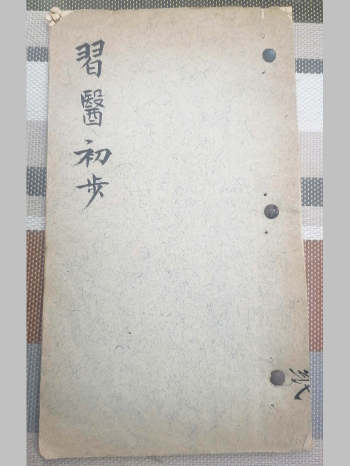 習醫初步